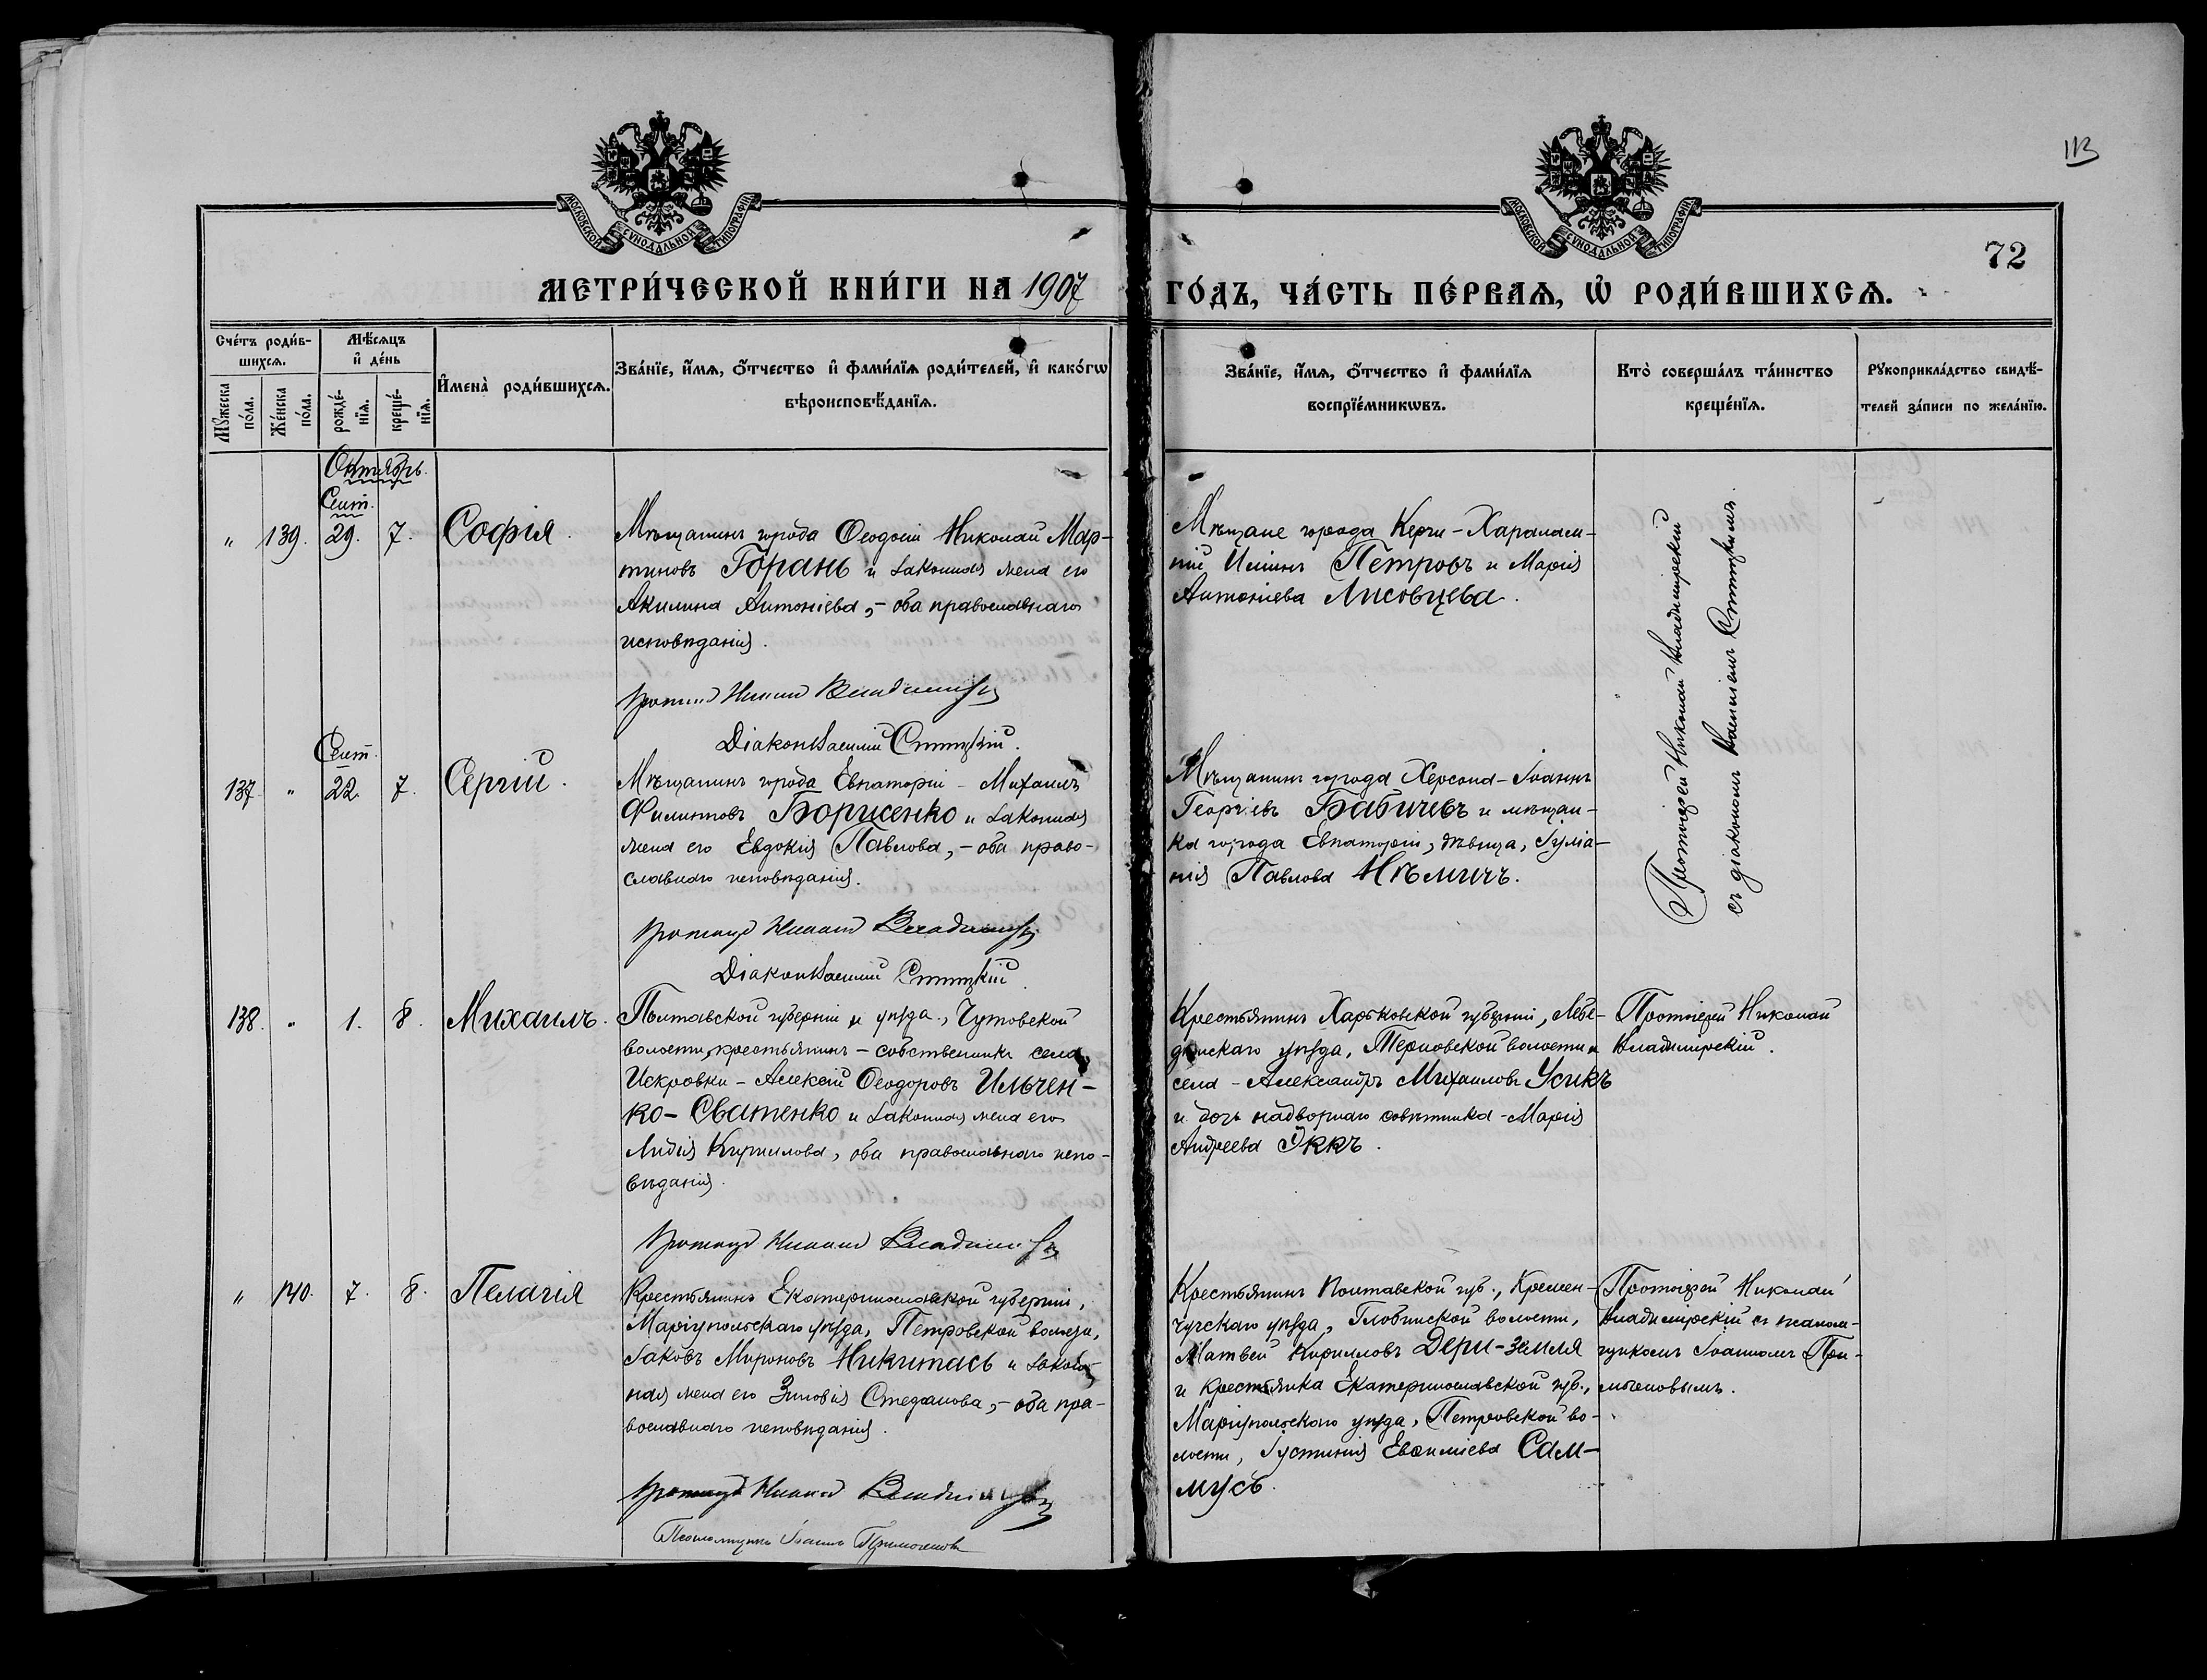 113
МОСКОВСКОЙ СѴНОДАЛЬНОЙ ТИПОГРАФІИ
МОСКОВСКОЙ СѴНОДАЛЬНОЙ ТИПОГРАФІИ
72
МЕТРИ́ЧЕСКОЙ КНИ́ГИ НА 1907 ГО́ДЪ, ЧА́СТЬ ПЕ́РВАѦ, Ѡ҆ РОДИ́ВШИХСѦ.
Сче́тъ роди́в-
шихсѧ.
Мꙋ́жеска по́ла.
Же́нска по́ла.
Мѣ́сѧцъ
и҆ де́нь
рожде́-
нїѧ.
креще́-
нїѧ.
И҆мена̀ роди́вшихсѧ.
Зва́нїе, и҆́мѧ, ѻ҆́тчество и҆ фами́лїѧ роди́телей, и҆ како́гѡ
вѣроисповѣ́данїѧ.
Зва́нїе, и҆́мѧ, ѻ҆́тчество и҆ фами́лїѧ
воспрїе́мникѡвъ.
Кто̀ соверша́лъ та́инство
креще́нїѧ.
Рꙋкоприкла́дство свидѣ́-
телей за́писи по жела́нїю.
Октябрь.
Сент.
" 139. 29. 7. Софія.
Мѣщанинъ города Ѳеодосіи Николай Мар-
тиновъ Горань и законная жена его
Акилина Антоніева, - оба православнаго
исповѣданія.
Протоіер Николай Владимірскій
Діаконъ Василій Стицкій.
Мѣщане города Керчи - Харалам-
пій Ильинъ Петровъ и Марія
Антоніева Лисовцева.
Протоіерей Николай Владимірскій
съ діакономъ Василіемъ Стицкимъ.
Сент.
137. " 22. 7. Сергій.
Мѣщанинъ города Евпаторіи - Михаилъ
Филиповъ Борисенко и законная
жена его Евдокія Павлова, - оба право-
славнаго исповѣданія.
Протоіер Николай Владимірскій
Діаконъ Василій Стицкій
Мѣщанинъ города Херсона - Іоаннъ
Георгіевъ Бабичевъ и мѣщан-
ка города Евпаторіи, дѣвица, Іуліа-
нія Павлова Нѣмичъ.
138. " 1. 8. Михаилъ.
Полтавской губерніи и уѣзда, Чутовской
волости, крестьянинъ - собственникъ села
Искровки - Алексій Ѳеодоровъ Ильчен-
ко - Сватенко и законная жена его
Лидія Кирилова, оба православнаго испо-
вѣданія.
Протоіер Николай Владимірскій
Крестьянинъ Харьковской губерніи, Лебе-
динскаго уѣзда, Терновской волости и
села - Александръ Михаиловъ Усикъ
и дочь надворнаго совѣтника - Марія
Андреева Эккъ.
Протоіерей Николай
Владимірскій.
" 140. 7. 8. Пелагія
Крестьянинъ Екатеринославской губерніи,
Маріупольскаго уѣзда, Петровской волости,
Іаковъ Мироновъ Никитась и закон-
ная жена его Зиновія Стефанова, - оба пра-
вославнаго исповѣданія.
Протоіер Николай Владимірскій
Псаломщикъ Іоаннъ
Крестьянинъ Полтавской губ., Кремен-
чугскаго уѣзда, Глобинской волости,
Матвей Кирилловъ Дери-земля
и крестьянка Екатеринославской губ.,
Маріупольскаго уѣзда, Петровской во-
лости, Іустинія Евѳиміева Сам-
мусь.
Протоіерей Николай
Владимірскій съ псалом-
щикомъ Іоанномъ